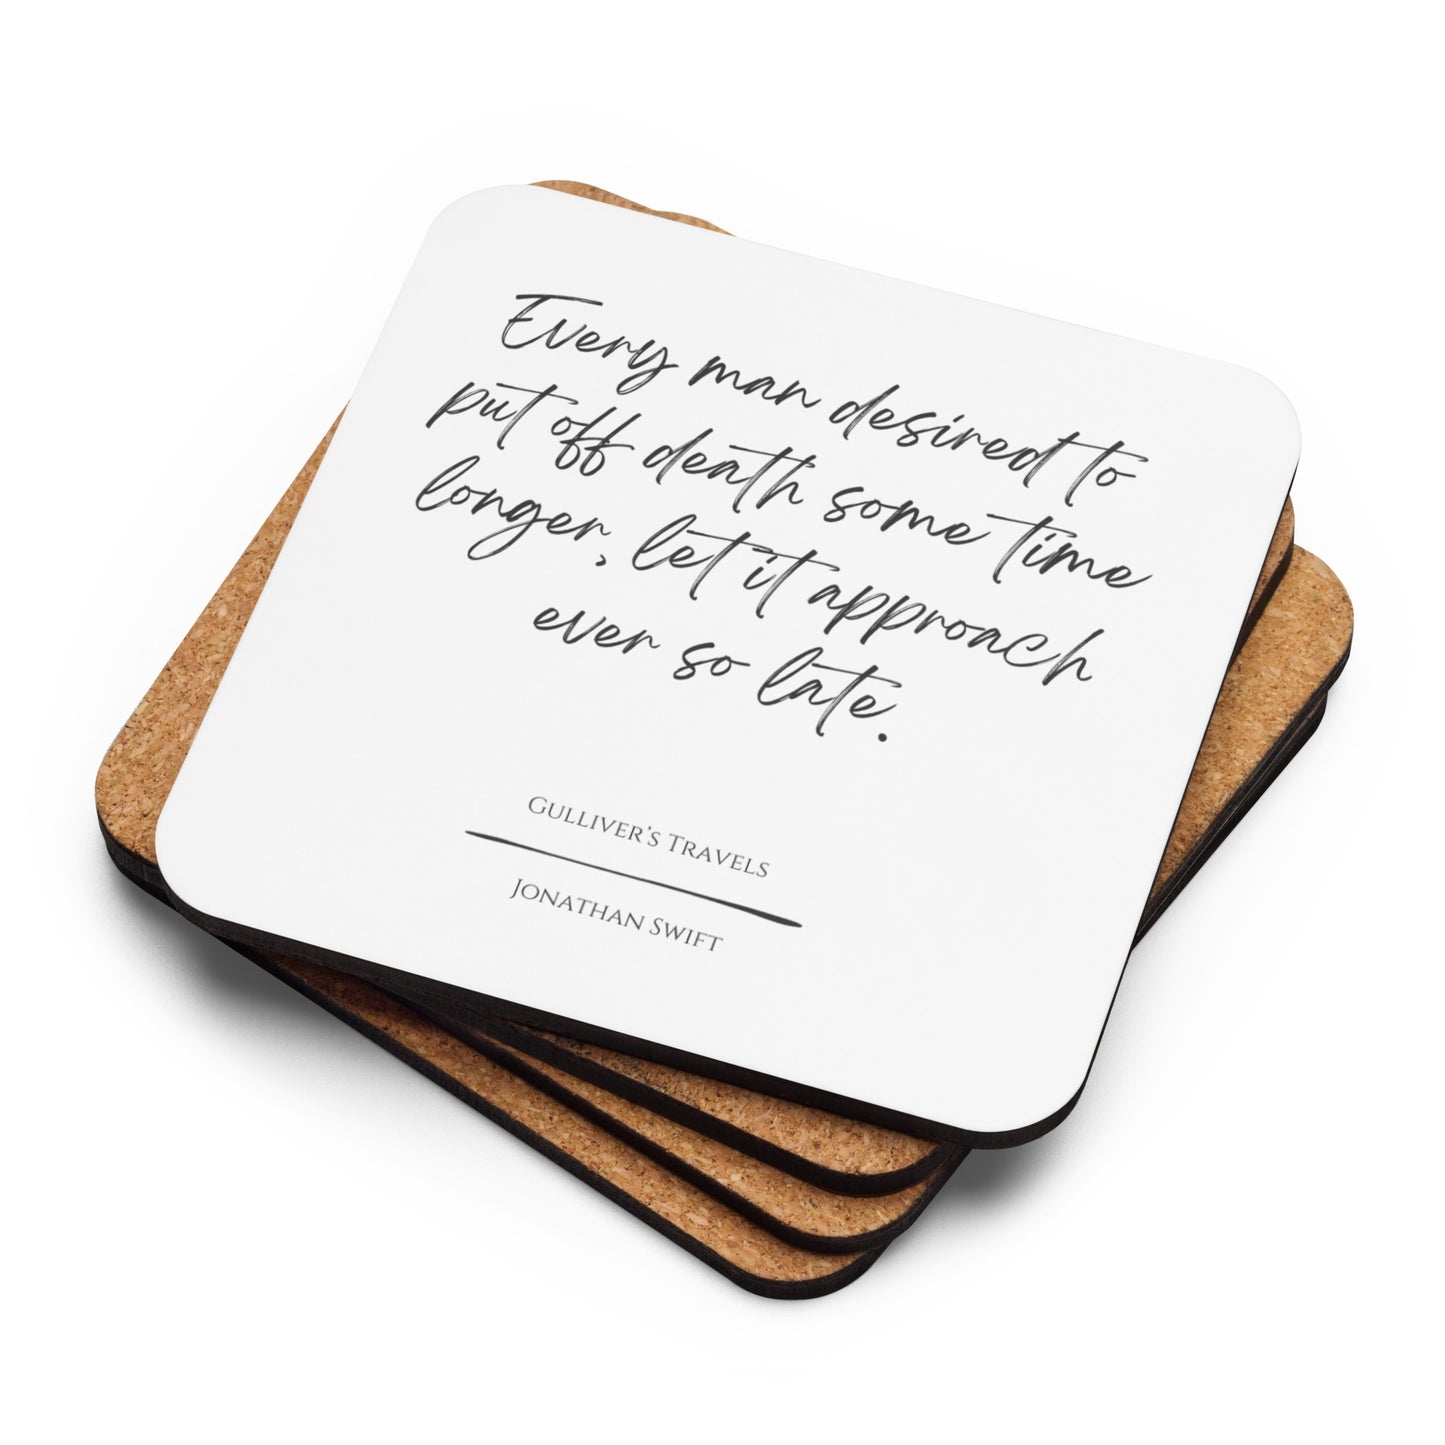 Every man desired to
put off death some time
longer, let it approach
ever so late.
Gulliver's Travels
Jonathan Swift